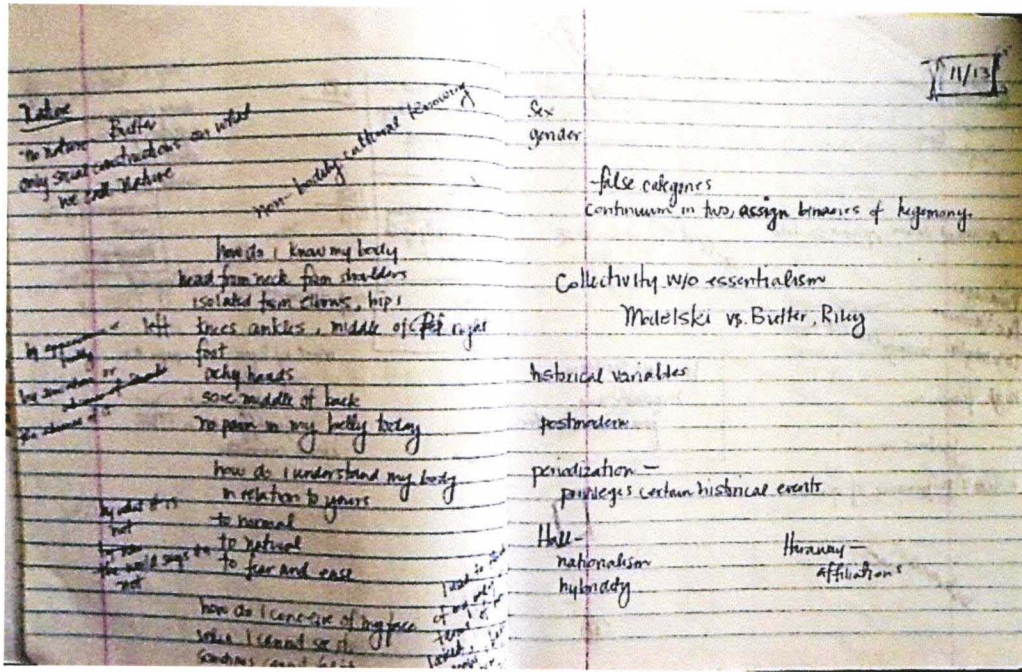 Nature
"no nature Butler
only social constructions on what
we call nature
non-bodily cultural knowing
how do i know my body
head from neck from shoulders
isolated from elbows, hips
left knees ankles, middle of right
foot
achy hands
sore middle of back
no pain in my belly today
by sensation or
the absence of it
how do i understand my body
in relation to yours
to normal
to natural
to fear and ease
by what it is
not
the world says it's
not
how do i conceive of my face
since I cannot see it
11/13
Sex
gender
false categories
continuum in two, assign binaries of hegemony.
Collectivity w/o essentialism
Modelski vs. Butler, Riley
historical variables
postmodern
periodization —
privileges certain historical events
Hall -
nationalism
hybridity
Haraway —
affiliations